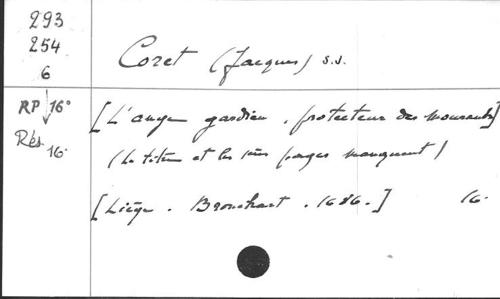 293
254
6
Coret (Jacques) s.j.
RP 16°
Rés 16.
[L'ange gardien. protecteur des mourants]
(Le titre et les 1ères pages manquent)
[Liège. Bronchart. 1686.] 16.